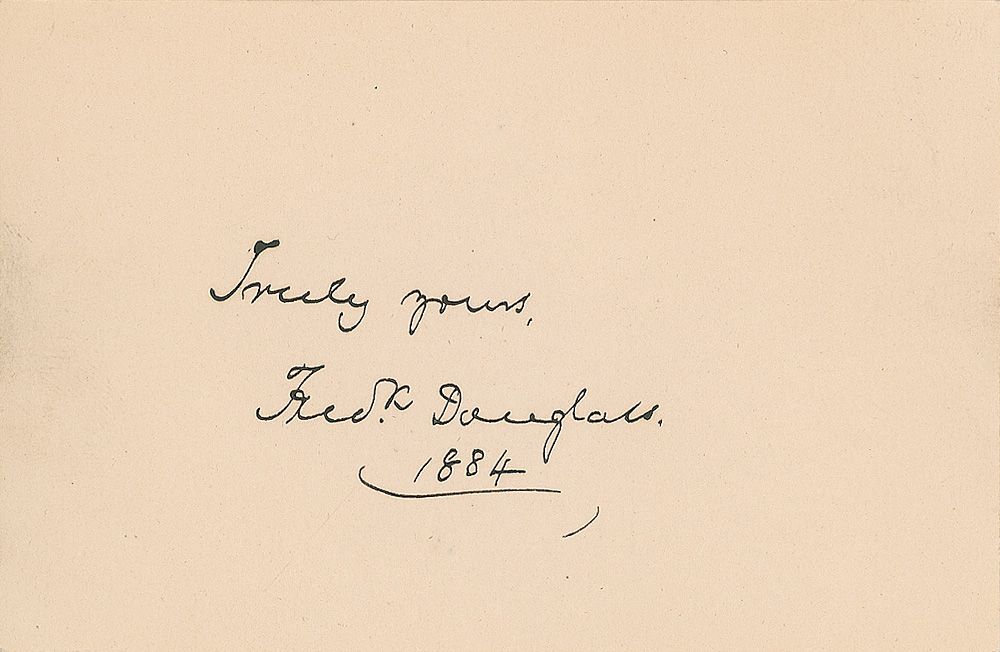 Truly yours,
Fredk. Douglass.
1884